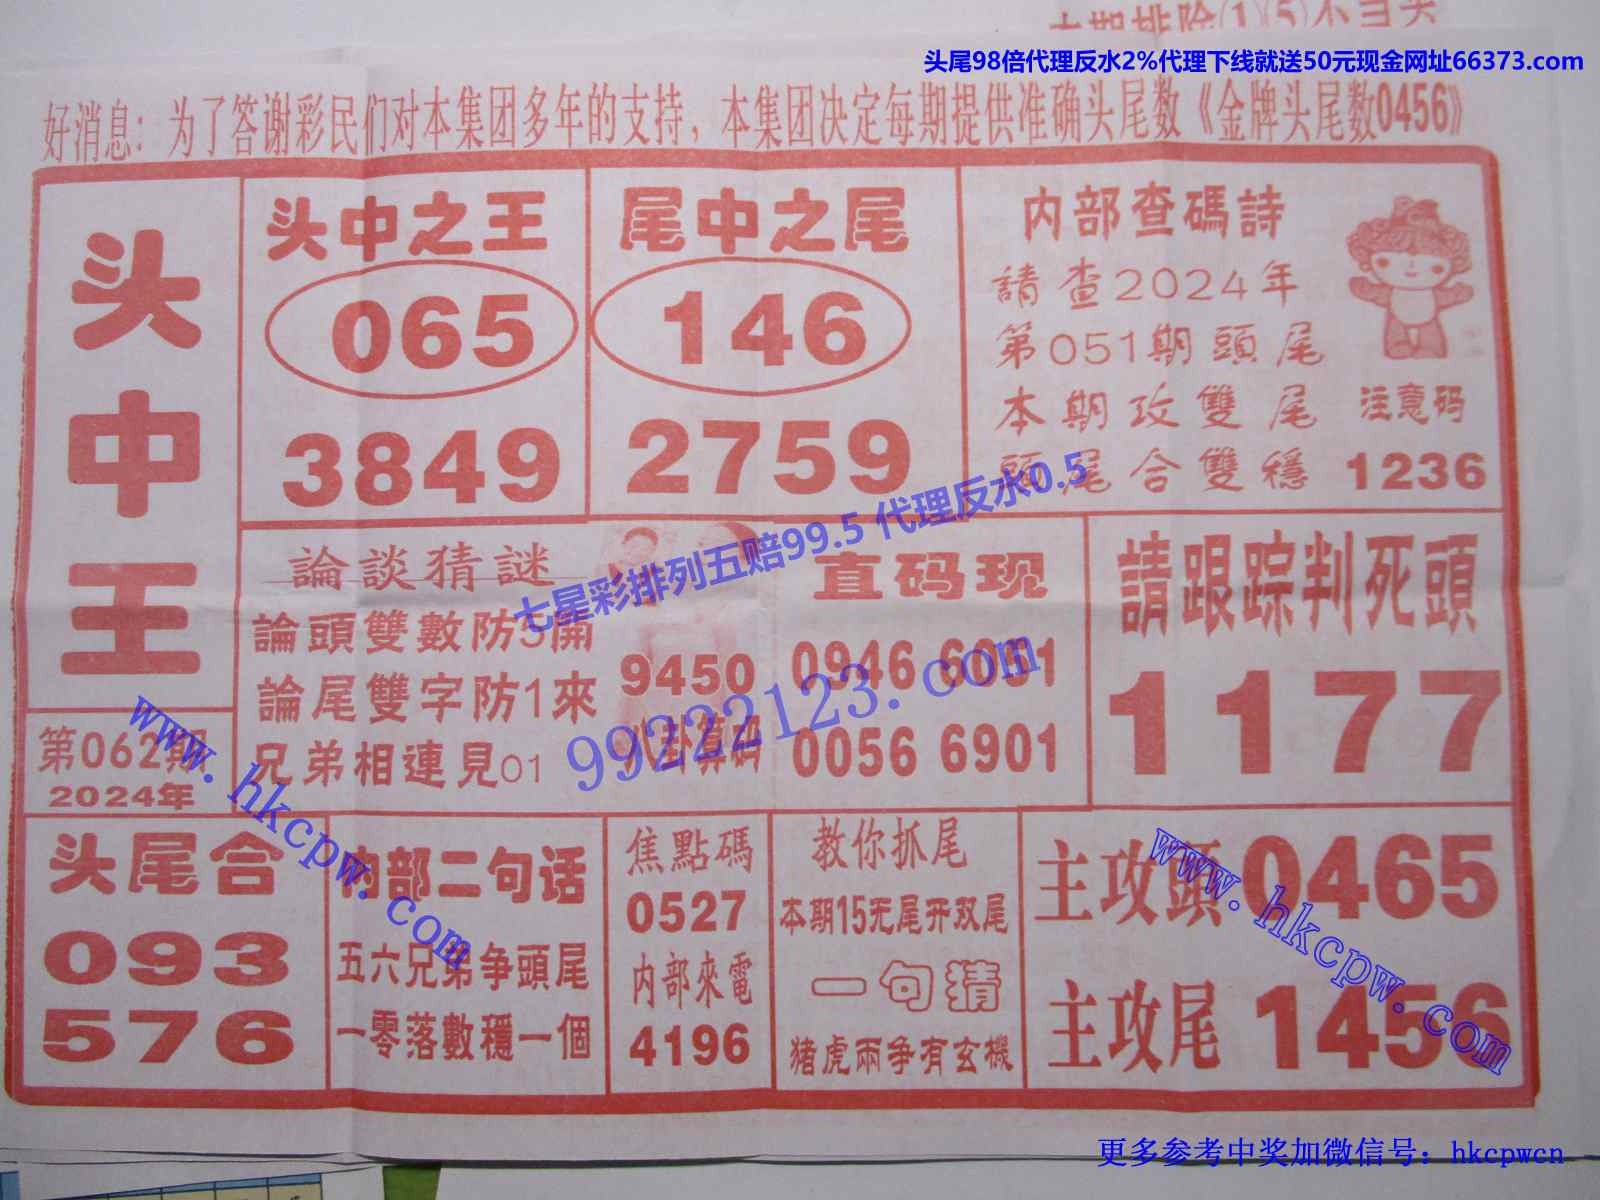 头尾98倍代理反水2%代理下线就送50元现金网址66373.com
好消息：为了答谢彩民们对本集团多年的支持，本集团决定每期提供准确头尾数《金牌头尾数0456》
头中王
第062期
2024年
头中之王
065
3849
尾中之尾
146
2759
内部查碼詩
請查2024年
第051期頭尾
本期攻雙尾
頭尾合雙穩
注意码
1236
論談猜謎
論頭雙數防5開
論尾雙字防1來
兄弟相連見01
9450
八卦算码
直码现
0946 6051
0056 6901
請跟踪判死頭
1177
头尾合
093
576
内部二句话
五六兄弟争頭尾
一零落數穩一個
焦點碼
0527
内部來電
4196
教你抓尾
本期15无尾开双尾
一句猜
猪虎兩争有玄機
主攻頭0465
主攻尾1456
七星彩排列五赔99.5 代理反水0.5
99222123.com
www.hkcpw.com
www.hkcpw.com
更多参考中奖加微信号：hkcpwcn